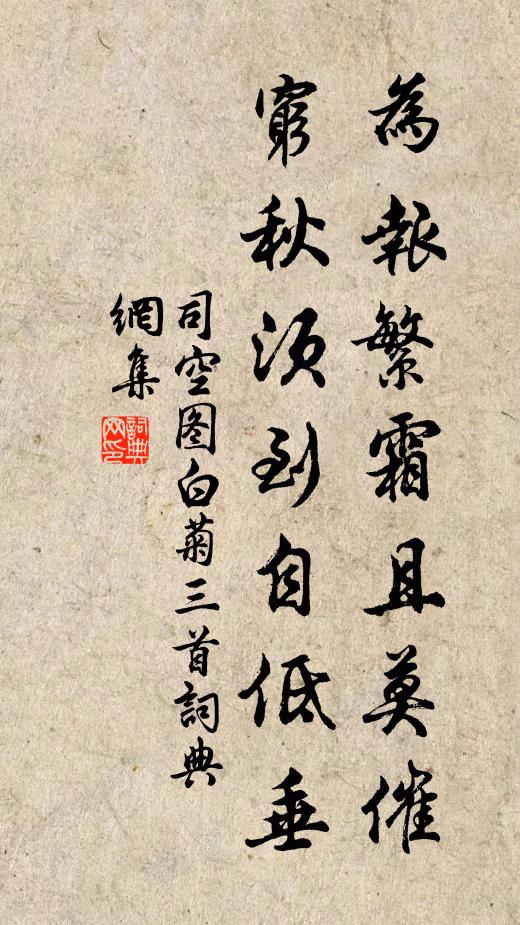 為報繁霜且莫催
窮秋須到自低垂
司空图白菊三首詞典
網集
詞典
网印